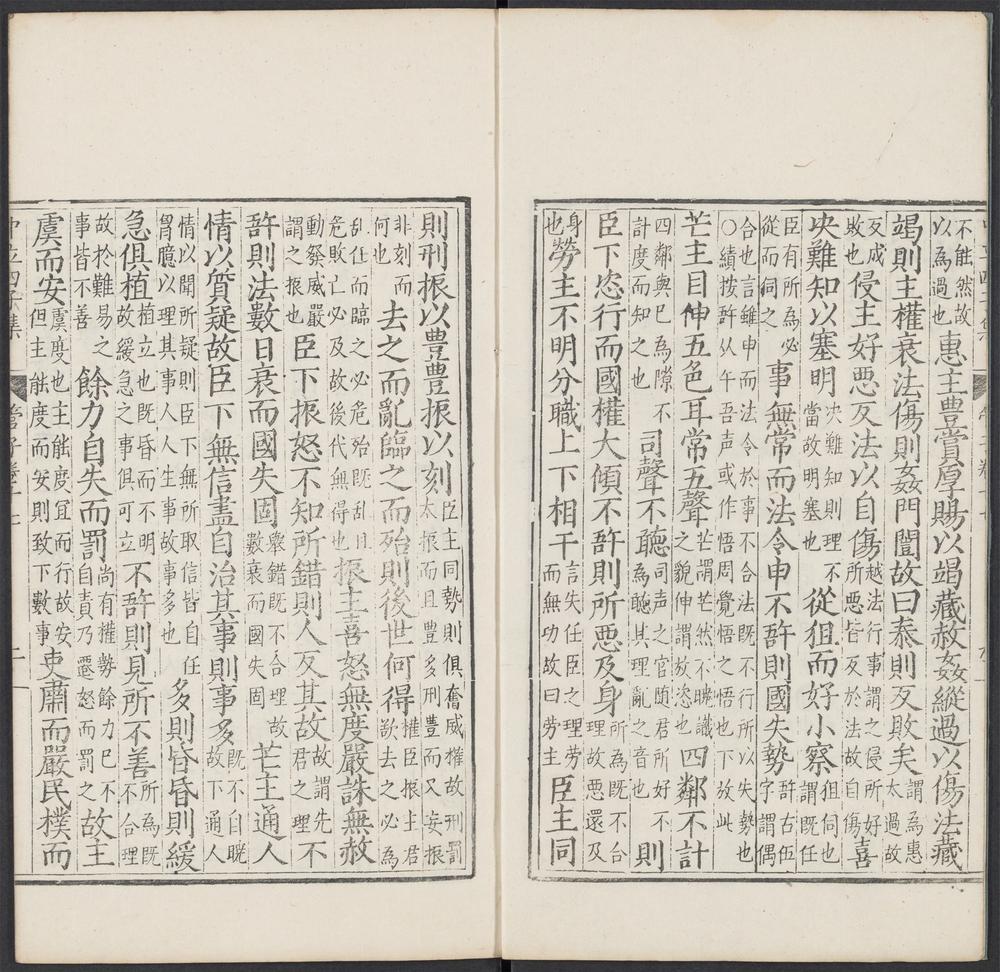 不能然故以為過也惠主豊賞厚賜以竭藏赦姦縱過以傷法藏
竭則主權衰法傷則姦門闓故曰泰則反敗矣謂為惠太過故
反成敗也侵主好惡反法以自傷越法行事謂之侵所好所惡皆反於法故自傷喜
決難知以塞明決難知則理不當故明塞也從狙而好小察狙伺也謂既任
臣有所為必從而伺之事無常而法令申不許則國失勢許古伍字謂偶
合也言雖申而法令於事不合法既不行所以失勢也〇績按許从午吾声或作悟周覺悟之悟也下放此
芒主目伸五色耳常五聲芒謂芒然不曉識之貌伸謂放恣也四鄰不計
四鄰與已為隙不計度而知之也司聲不聽司声之官随君所好不為聽其理亂之音也則
臣下恣行而國權大傾不許則所惡及身所為既不合理故惡還及
身也勞主不明分職上下相干言失任臣之理勞而無功故曰勞主臣主同
則刑振以豊豊振以刻臣主同勢則俱奮威權故刑罰太振而且豊多刑豊而又妄振
非刻而何也去之而亂臨之而殆則後世何得權臣振主君欲去之必為
乱任而臨之必危殆既乱且危敗亡必及故後代無得也振主喜怒無度嚴誅無赦
動發威嚴謂之振也臣下振怒不知所錯則人反其故故謂先君之理不
許則法數日衰而國失固舉錯既不合理故數衰而國失固芒主通人
情以質疑故臣下無信盡自治其事則事多既不自晄故下通人
情以聞所疑則臣下無所取信皆自任胷臆以理其事人人生事故事多也多則昏昏則緩
急俱植植立也既昏而不明故緩急之事俱可立不許則見所不善所為既不合理
故於難易之事皆不善餘力自失而罰尚有權勢餘力巳不自責乃遷怒而罰之故主
虞而安虞度也主能度冝而行故安但主能度而安則致下數事吏肅而嚴民樸而